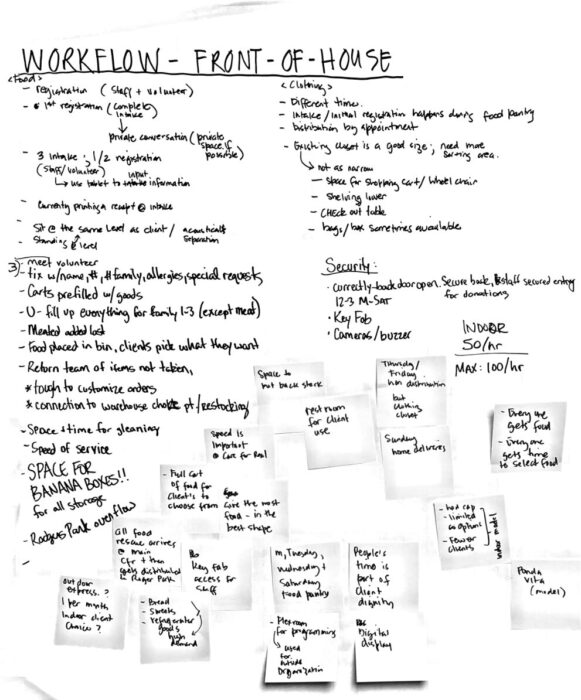 WORKFLOW - FRONT-OF-HOUSE
<Food>
- registration (Staff + volunteer)
- 1st registration (complete
intake)
private conversation (private
space if
possible)
- 3 intake; 1/2 registration
(Staff/volunteer) input
→ use tablet to intake information
- Currently printing a receipt @ intake
- Sit @ the same level as client / acoustical
Standing @ level separation
3) - meet volunteer
- tix w/name, #, #family, allergies, special requests
- Carts prefilled w/ goods
- U- fill up everything for family 1-3 (except meat)
- Meated added last
- Food placed in bin, clients pick what they want
- Return team of items not taken,
* tough to customize orders
* connection to warehouse choke pt/restocking
- Space + time for gleaning
- Speed of service
- SPACE FOR
BANANA BOXES!!
for all storage
- Rodgers Park overflow
-
<Clothing>
- Different times.
- Intake/Initial registration happens during food pantry
- Distribution by appointment
- Existing closet is a good size; need more
sorting area.
→ not as narrow
- Space for shopping cart/ wheel chair
- Shelving lower
- CHECK out table
- bags/box sometimes available
Security:
· currently - back door open, Secure back, staff secured entry
12-3 M-SAT for donations
· Key Fob
· Cameras/buzzer
INDOOR
50/hr
MAX: 100/hr
Space to
not back stock
restroom
for client
use
Thursday/
Friday
non distribution
but
clothing
closet
- Everyone
gets food
- Everyone
gets time
to select food
Speed is
important
@ Care for Real
Sunday
home deliveries
- Full Cart
of food for
client's to
choose from
Give the most
food - in the
best shape
- had cap
- limited
options
- Fewer
clients
indoor model
All food
rescue arrives
@ main
ctr + then
gets distributed
@ Roger Park
Key fob
access for
staff
M, Tuesday,
Wednesday +
Saturday
food pantry
People's
time is
part of
client
dignity
Panda
vita
(model)
outdoor
express.?
1 per month
Indoor client
Choice?
- Bread
- Sweets
- refrigerator
goods
high
demand
- Flexroom
for programming
→ used
for
outside
organization
Digital
display